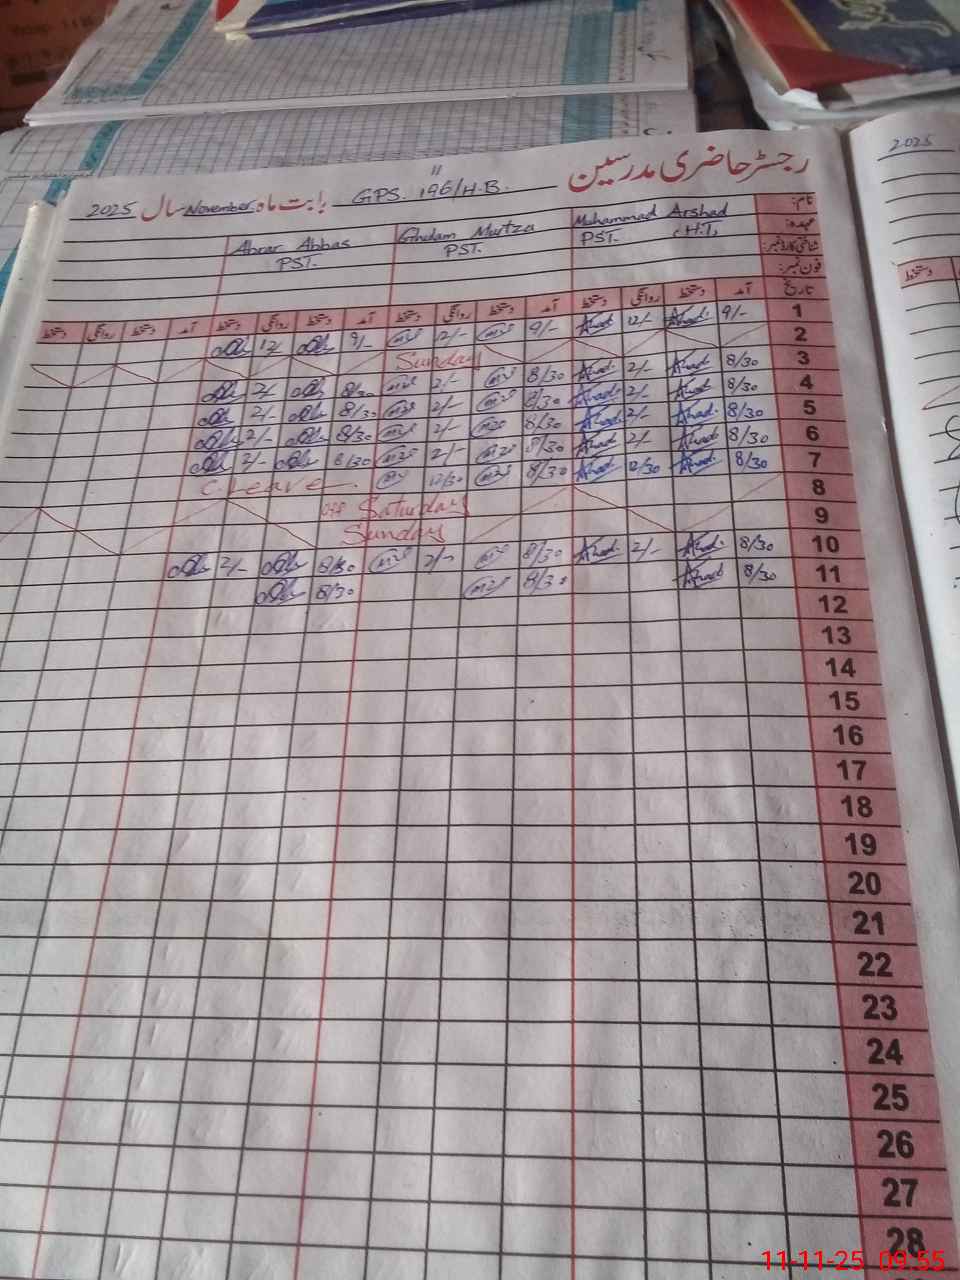 رجسٹر حاضری مدرسین
GPS. 196/H.B. بابت ماہ November سال 2025
نام:
Muhammad Arshad Ghulam Murtza Abrar Abbas
عہدہ:
PST. (H.T) PST. PST.
شناختی کارڈ نمبر:
فون نمبر:
تاریخ آمد دستخط روانگی دستخط آمد دستخط روانگی دستخط آمد دستخط روانگی دستخط آمد دستخط روانگی دستخط
1 9/- Arshad 12/- Arshad 9/- 12/- 9/- 12/-
2 Sunday
3 8/30 Arshad 2/- Arshad 8/30 2/- 8/30 2/-
4 8/30 Arshad 2/- Arshad 8/30 2/- 8/30 2/-
5 8/30 Arshad 2/- Arshad 8/30 2/- 8/30 2/-
6 8/30 Arshad 2/- Arshad 8/30 2/- 8/30 2/-
7 8/30 Arshad 12/30 Arshad 8/30 12/30 C. Leave
8 off Saturday
9 Sunday
10 8/30 Arshad 2/- Arshad 8/30 2/- 8/30 2/-
11 8/30 Arshad 8/30 8/30
12
13
14
15
16
17
18
19
20
21
22
23
24
25
26
27
28
2025
دستخط
11-11-25 09:55